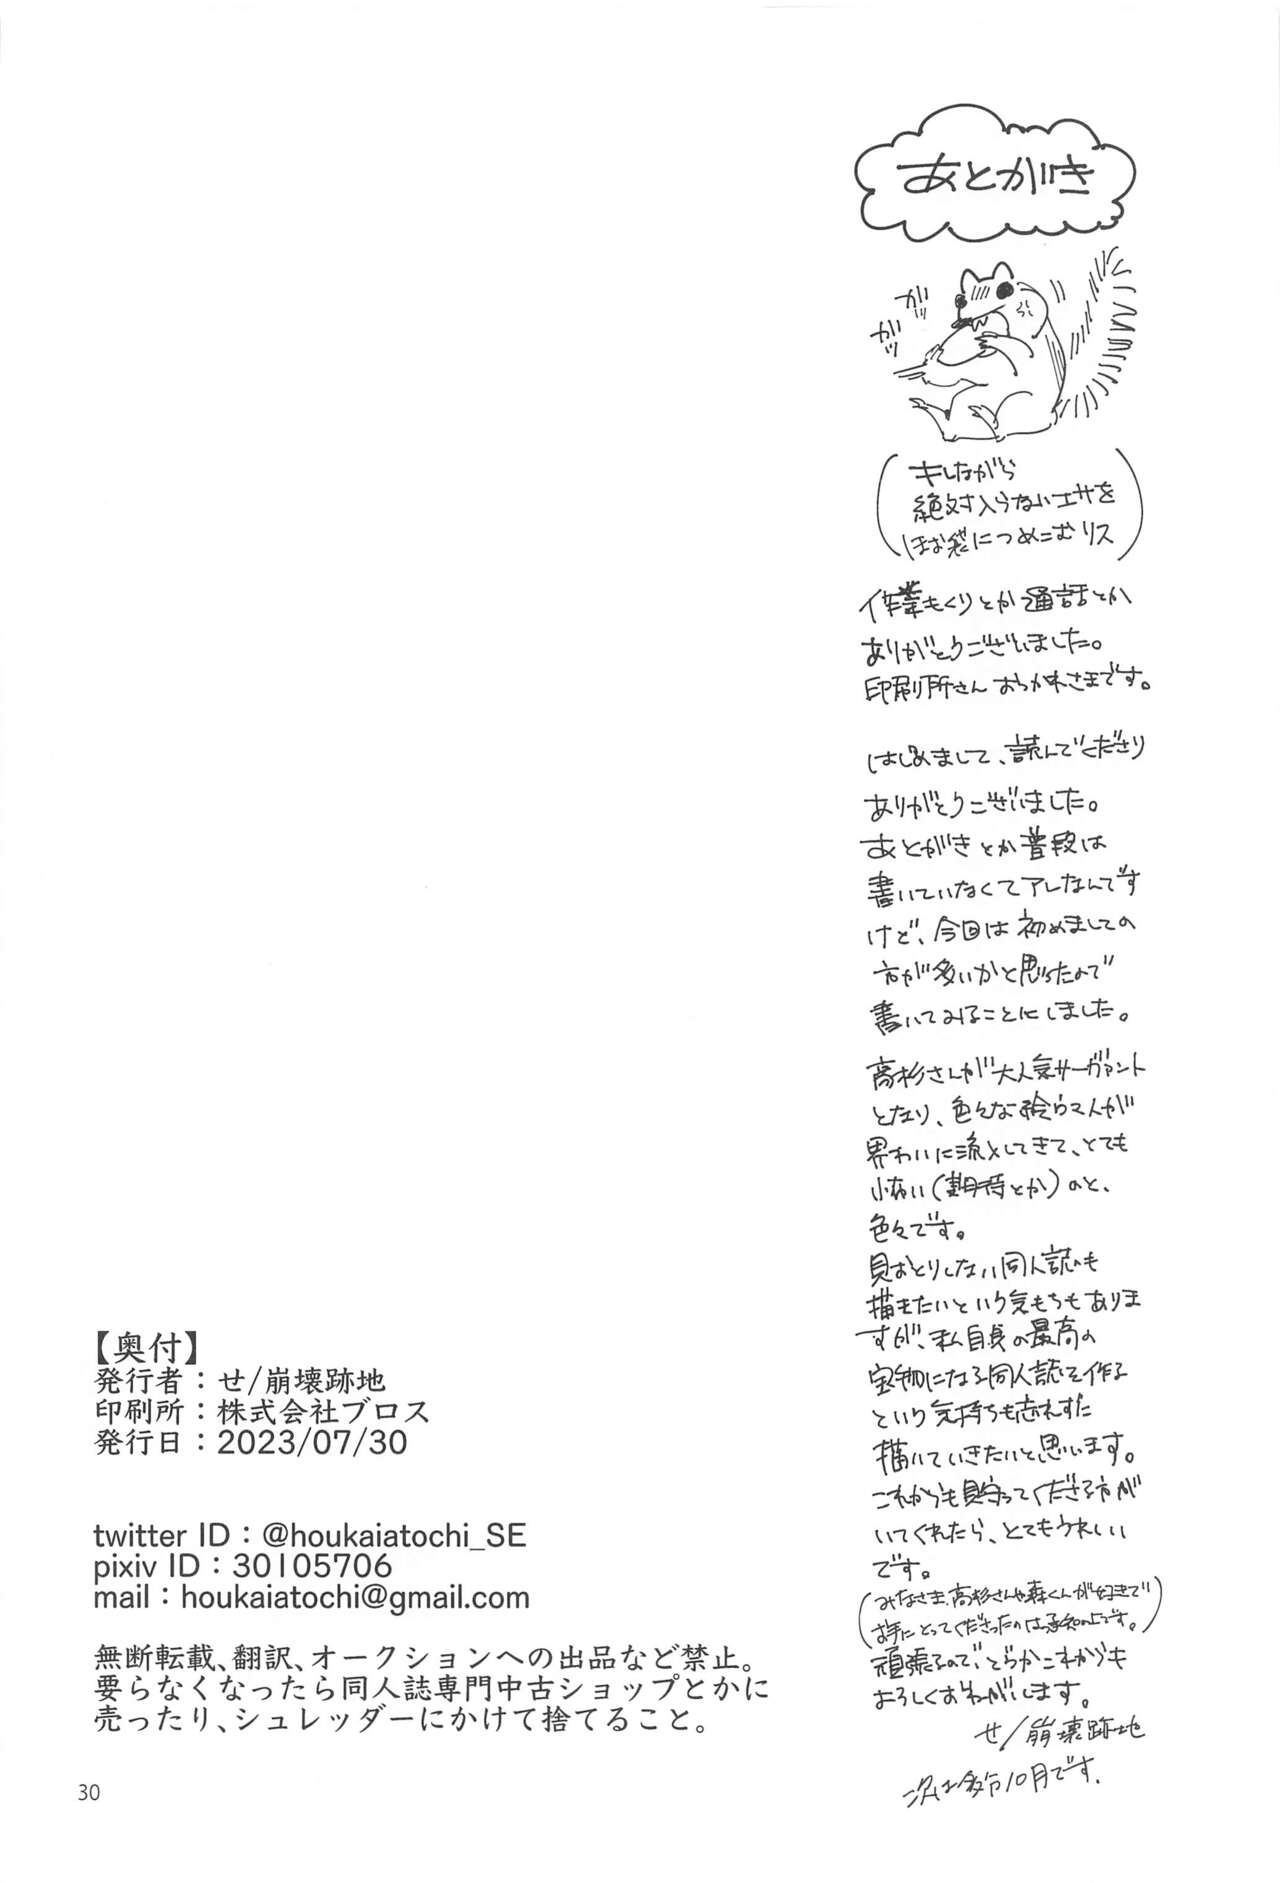 あとがき
ガッ
ガッ
(キレながら
絶対入らないエサを
ほお袋につめこむリス)
作業もくりとか通話とか
ありがとうございました。
印刷所さんおつかれさまです。
はじめまして、読んでくださり
ありがとうございました。
あとがきとか普段は
書いていなくてアレなんです
けど、今回は初めましての
方が多いかと思ったので
書いてみることにしました。
高杉さんが大人気サーヴァント
となり、色々な絵うま人が
界わいに流入してきて、とても
怖い(期待とか)のと、
色々です。
見おとりしない同人誌も
描きたいという気もちもありま
すが、私自身の最高の
宝物になる同人誌を作る
という気持ちも忘れずに
描いていきたいと思います。
これからも見守ってくださる方が
いてくれたら、とてもうれしい
です。
(みなさま、高杉さんや森くんが好きで
お手にとってくださったのは承知の上です。)
頑張るので、どうかこれからも
よろしくおねがいします。
せ/崩壊跡地
次は多分10月です.
【奥付】
発行者：せ/崩壊跡地
印刷所：株式会社ブロス
発行日：2023/07/30
twitter ID：@houkaiatochi_SE
pixiv ID：30105706
mail：houkaiatochi@gmail.com
無断転載、翻訳、オークションへの出品など禁止。
要らなくなったら同人誌専門中古ショップとかに
売ったり、シュレッダーにかけて捨てること。
30